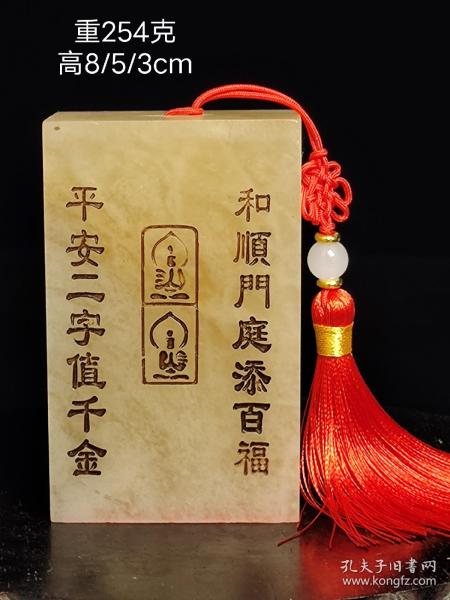 重254克
高8/5/3cm
和順門庭添百福
平安二字值千金
孔夫子旧书网
www.kongfz.com